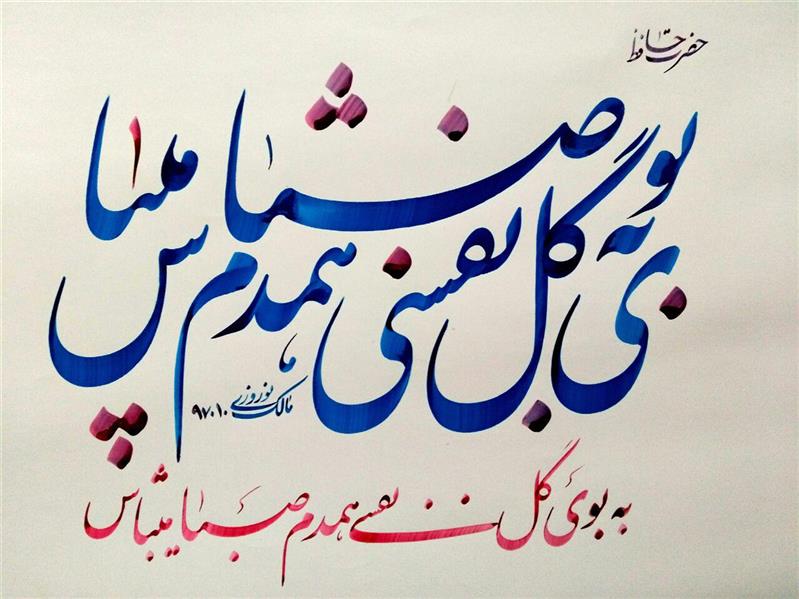 حضرت حافظ
به بوی گل نفسی همدم صبا می‌باش
مالک نوروزی ۹۷.۱۰
به بوی گل نفسی همدم صبا می‌باش